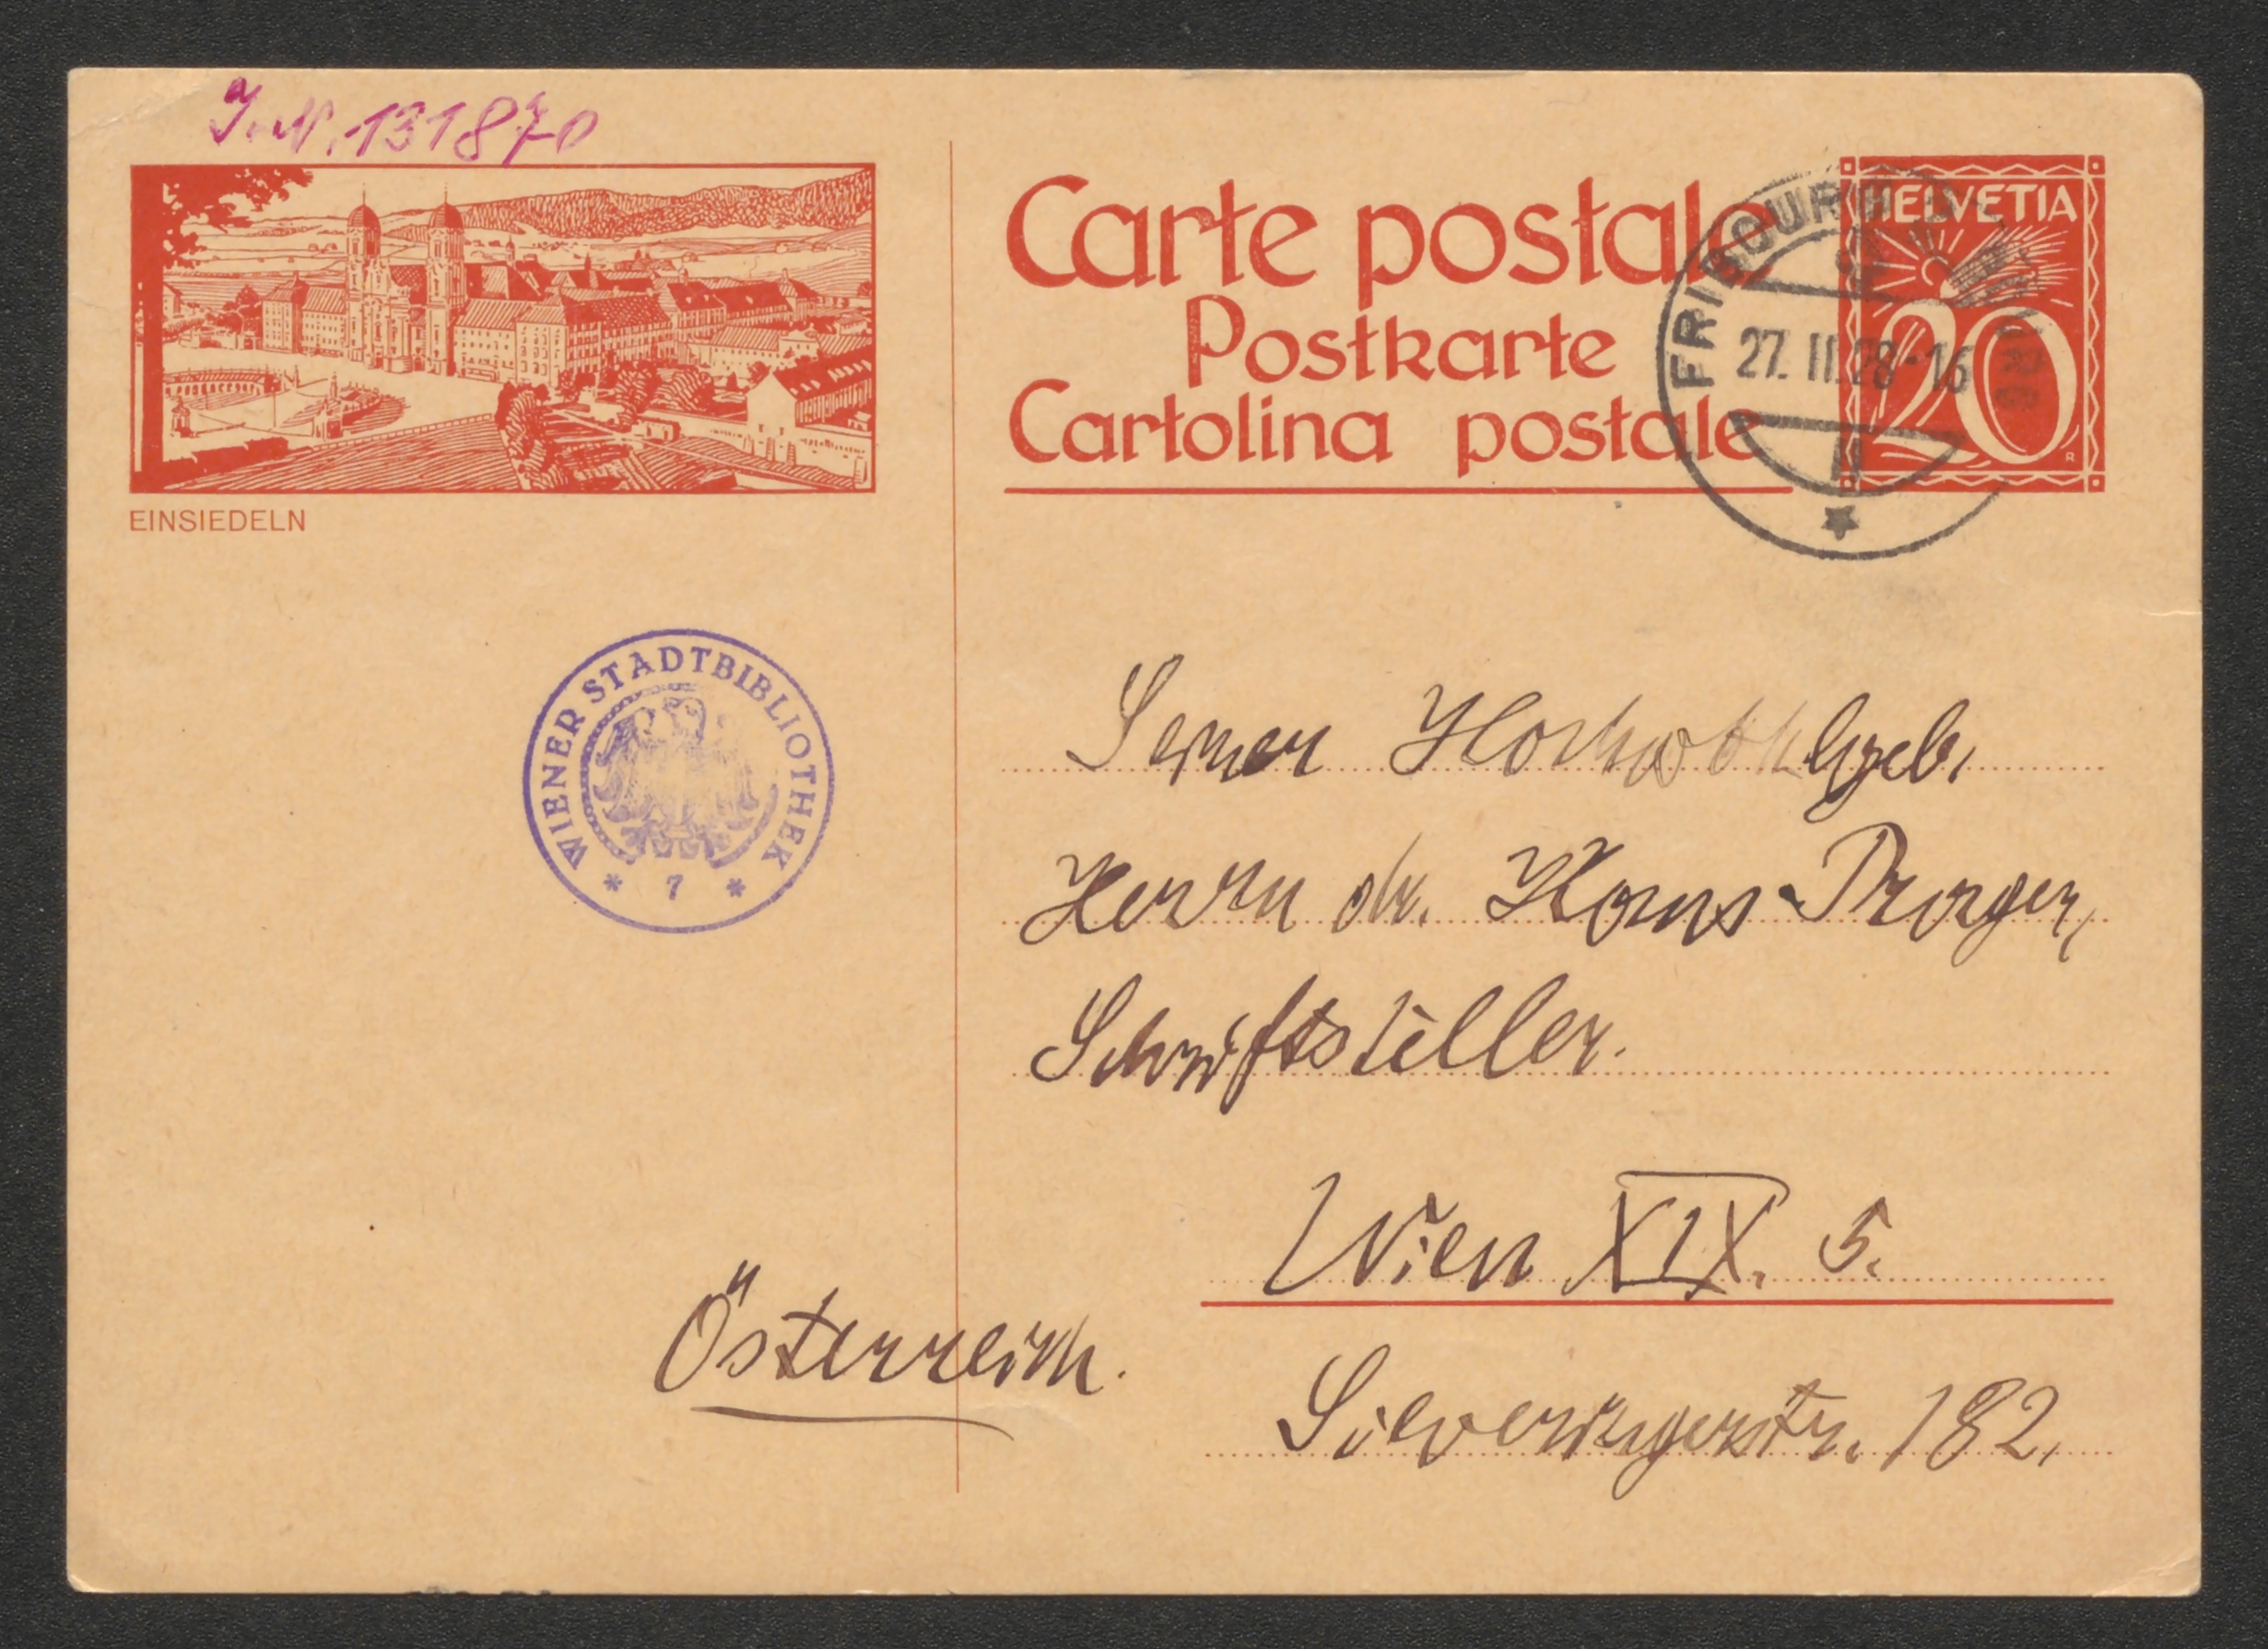 I.N. 131870
EINSIEDELN
WIENER STADTBIBLIOTHEK
* 7 *
Carte postale
Postkarte
Cartolina postale
HELVETIA
20
FRIBOURG
27. II. 28 - 16
Seiner Hochwohlgeb.
Herrn dr. Hans Prager,
Schriftsteller.
Wien XIX. 5.
Österreich.
Sieveringerstr. 182.